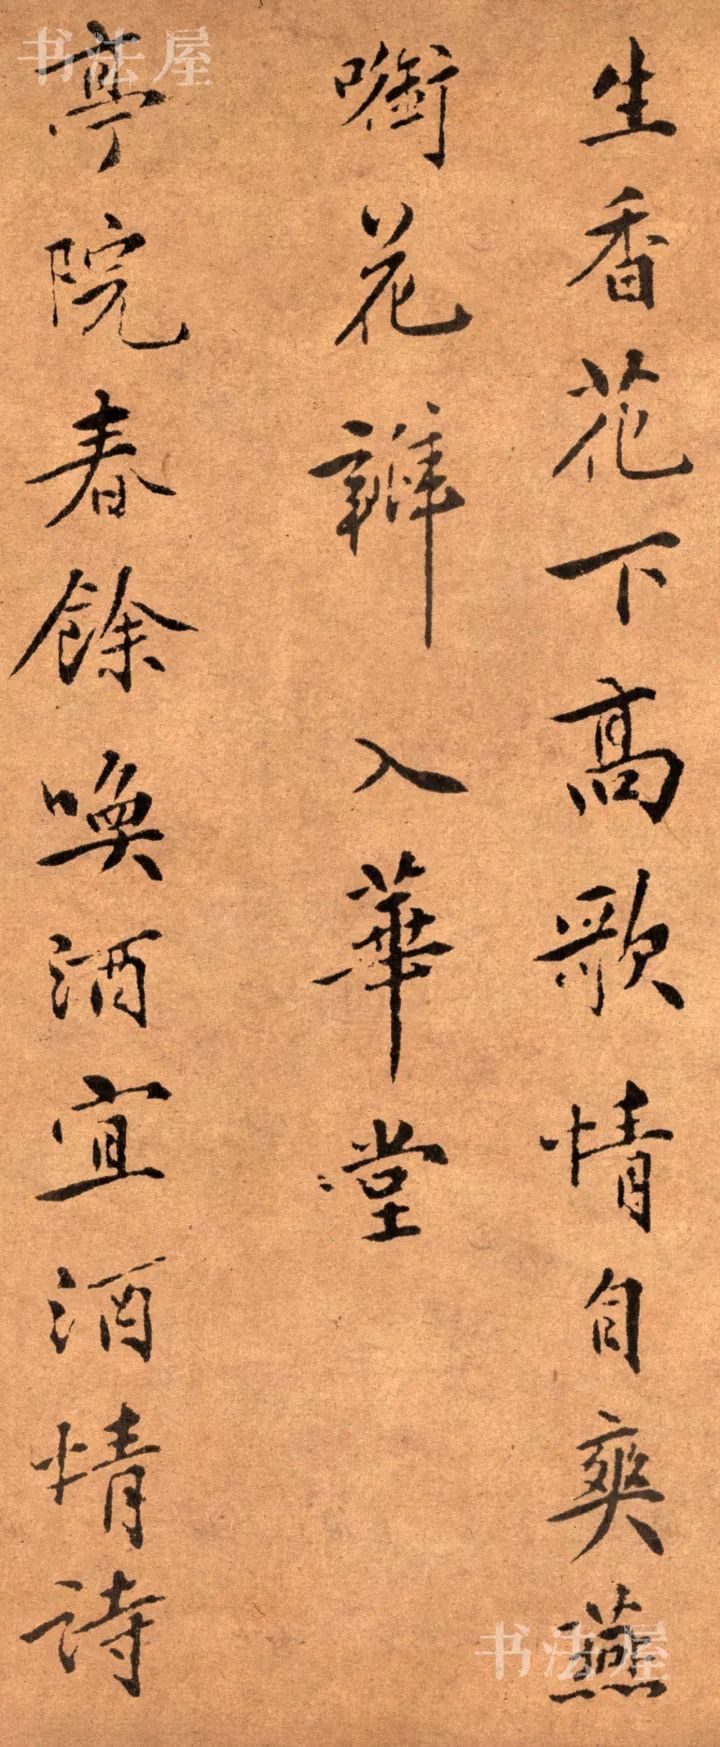 生香花下高歌情自爽燕
啣花瓣入華堂
亭院春餘喚酒宜酒情詩
书法屋
书法屋